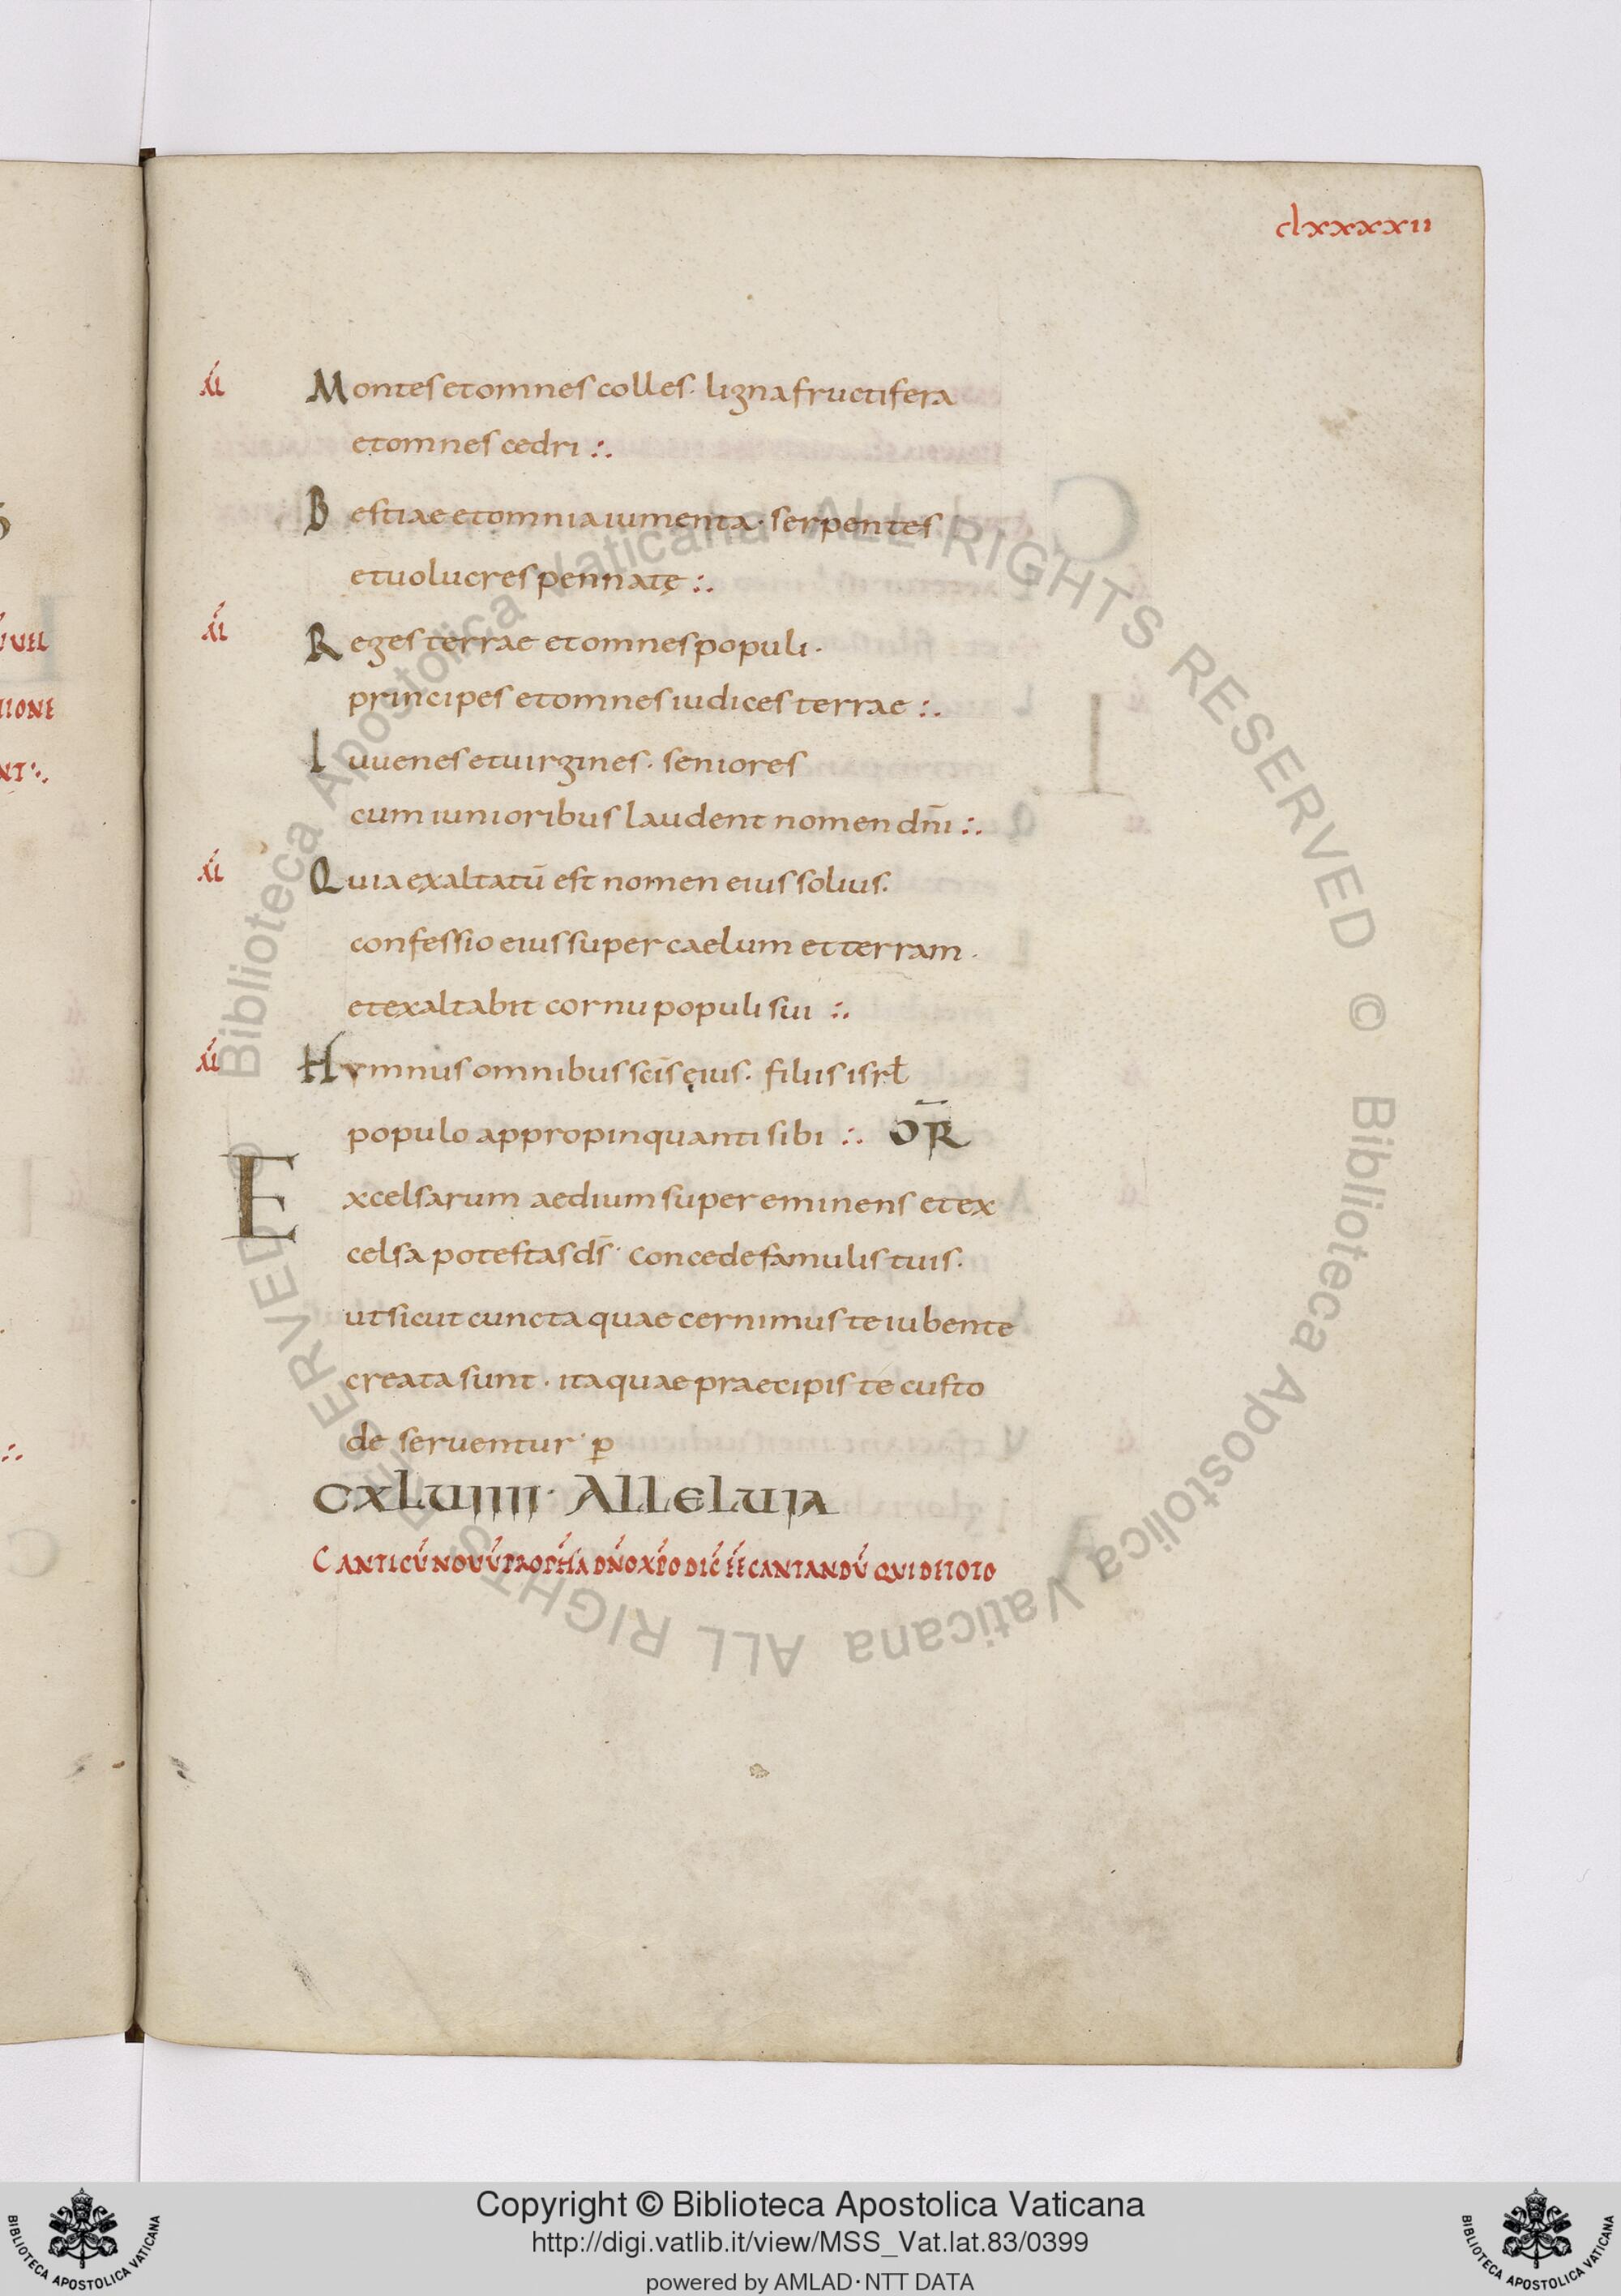 clxxxxii
Montes et omnes colles · ligna fructifera
et omnes cedri :.
Bestiae et omnia iumenta · serpentes
et uolucres pennatę :.
Reges terrae et omnes populi ·
principes et omnes iudices terrae :.
Iuuenes et uirgines · seniores
cum iunioribus laudent nomen dn̄i :.
Quia exaltatū est nomen eius solius ·
confessio eius super caelum et terram ·
et exaltabit cornu populi sui :.
Hymnus omnibus scīs ęius · filiis isrł
populo appropinquanti sibi :. OR̄
Excelsarum aedium supereminens et ex
celsa potestas ds̄ · concede famulis tuis ·
ut sicut cuncta quae cernimus te iubente
creata sunt · ita quae praecipis te custo
de seruentur · p
CXLUIIII · ALLELUIA
CANTICŪ NOUŪ PROPHA DN̄O XP̄O DIC̄ EE CANTANDŪ QUI DE TOTO
UEL
IONE
NT :.
Biblioteca Apostolica Vaticana ALL RIGHTS RESERVED ©
Biblioteca Apostolica Vaticana ALL RIGHTS RESERVED ©
Copyright © Biblioteca Apostolica Vaticana
http://digi.vatlib.it/view/MSS_Vat.lat.83/0399
powered by AMLAD·NTT DATA
BIBLIOTECA APOSTOLICA VATICANA
BIBLIOTECA APOSTOLICA VATICANA